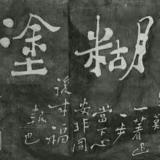 糊塗
一著退
一步
當下心
安非圖
後來福
報也